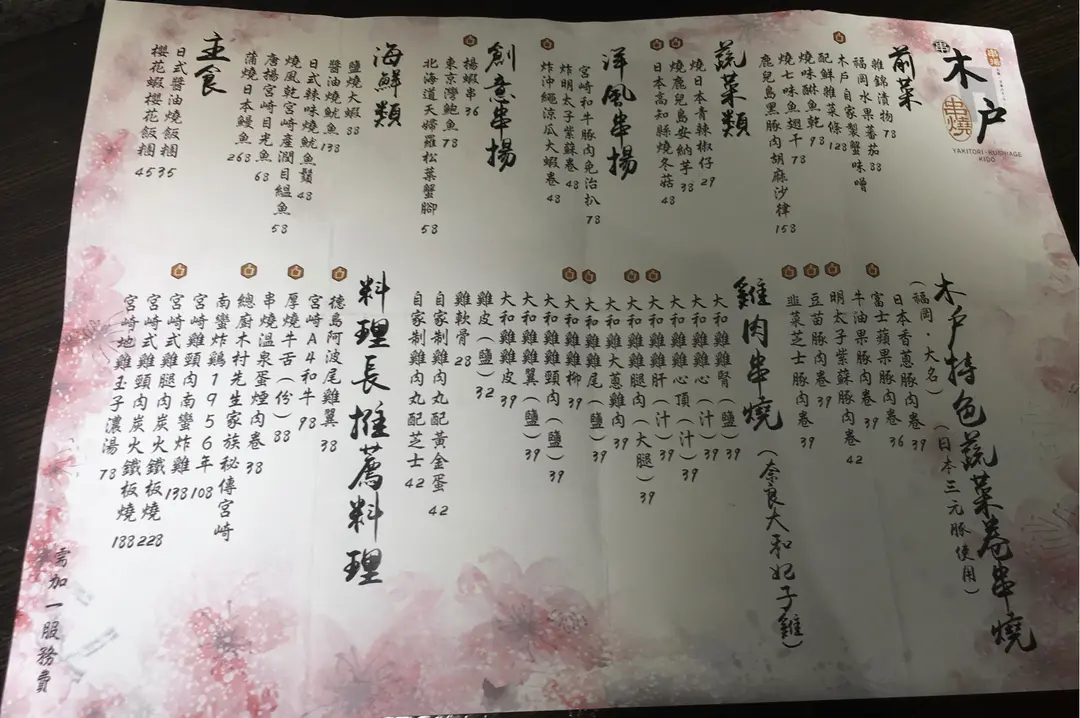 木戶
串燒
YAKITORI-KUSHIAGE
KIDO
前菜
雜錦漬物 78
福岡水果蕃茄 88
木戶自家製蟹味噌
配鮮雜菜條 128
燒味醂魚乾 98
燒七味魚翅干 78
鹿兒島黑豚肉胡麻沙律 158
蔬菜類
燒日本青辣椒仔 29
燒鹿兒島安納芋 38
日本高知縣燒冬菇 48
洋風串揚
宮崎和牛豚肉免治扒 78
炸明太子紫蘇卷 48
炸沖繩涼瓜大蝦卷 48
創意串揚
楊蝦串 36
東京灣鮑魚 78
北海道天婦羅松葉蟹腳 58
海鮮類
鹽燒大蝦 88
醬油燒魷魚 138
日式辣味燒魷魚鬚 48
燒風乾宮崎產潤目鰮魚 58
唐揚宮崎目光魚 68
蒲燒日本鰻魚 268
主食
日式醬油燒飯糰 35
櫻花蝦櫻花飯糰 45
木戶特色蔬菜卷串燒
(日本三元豚使用)
(福岡·大名)
日本香蔥豚肉卷 39
富士蘋果豚肉卷 36
牛油果豚肉卷 39
明太子紫蘇豚肉卷 42
豆苗豚肉卷 39
韮菜芝士豚肉卷 39
雞肉串燒
(奈良大和妃子雞)
大和雞雞腎(鹽) 39
大和雞雞心(汁) 39
大和雞心頂(汁) 39
大和雞雞肝(汁) 39
大和雞腿肉(大腿) 39
大和雞大蔥雞肉 39
大和雞雞尾(鹽) 39
大和雞雞柳 39
大和雞雞頸肉(鹽) 39
大和雞雞翼(鹽) 39
大和雞雞皮 39
雞皮(鹽) 32
雞軟骨 28
自家制雞肉丸配黃金蛋 42
自家制雞肉丸配芝士 42
料理長推薦料理
德島阿波尾雞翼 38
宮崎A4和牛 98
厚燒牛舌(份) 88
串燒溫泉蛋煙肉卷 38
總廚木村先生家族秘傳宮崎
南蠻炸鷄1956年 108
宮崎雞頸肉南蠻炸雞 138
宮崎式雞腿肉炭火鐵板燒 228
宮崎式雞頸肉炭火鐵板燒 188
宮崎地雞玉子濃湯 78
需加一服務費